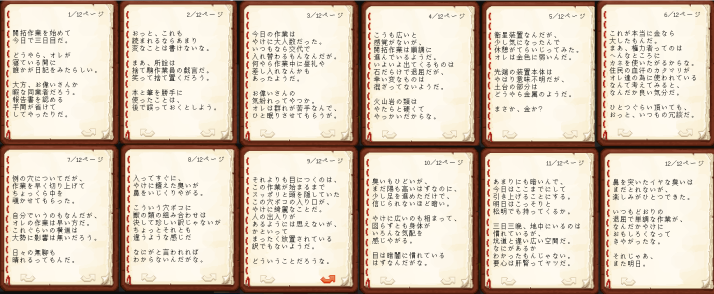 1/12ページ
開拓作業を始めて
今日で三日目だ。
どうやら、オレが
寝ている間に
誰かが日記をみたらしい。
大方、お偉いさんか
暇な同業者だろう。
報告書を認める
手間が省けて
してやったりだ。
2/12ページ
おっと、これも
読まれるならあまり
変なことは書けないな。
まあ、所詮は
捨て駒作業員の戯言だ。
笑って捨て置くだろう。
本と筆を勝手に
使ったことは、
後で謝っておくとしよう。
3/12ページ
今日の作業は
やけに大人数だった。
いつもなら交代で
入れ替わるもんなんだが。
何やら作業中に昼礼や
差し入れなんかも
あったようだ。
お偉いさんの
気紛れってやつか。
オレは群れが苦手なんで、
ひと眠りさせてもらうが。
4/12ページ
こうも広いと
感覚がないが、
開拓作業は順調に
進んでいるようだ。
いよいよ出てくるものは
石炭だらけで退屈だが、
幸い変なものは
混ざってないようだ。
火山岩の類は
やたらと硬くて
やっかいだからな。
5/12ページ
衛星装置なんだが、
少し気になったんで
休憩がてらいじってみた。
オレは金色に弱いんだ。
先端の装置本体は
やはり意味不明だが、
土台の部分は
どうやら金属のようだ。
まさか、金か？
6/12ページ
これが本当に金なら
大したもんだ。
まあ、権力者ってのは
へんなところに
カネを使いたがるからな。
住民の血汗のカタマリが
オレ達の為に使われている
なんて考えてみると、
なんだか良い気分だ。
ひとつぐらい頂いても、
おっと、いつもの冗談だ。
7/12ページ
例の穴についてだが、
作業を早く切り上げて
ちょっくら中を
覗かせてもらった。
自分でいうのもなんだが、
オレの作業は早い方だ。
これぐらいの横道は
大勢に影響は無いだろう。
日々の無聊も
晴れるってもんだ。
8/12ページ
入ってすぐに、
やけに饐えた臭いが
鼻をいじりやがる。
こういう穴ボコに
獣の類の組み合わせは
決して珍しい訳じゃないが
ちょっとそれとも
違うような感じだ
なにがと言われれば
わからないんだがな。
9/12ページ
それよりも目につくのは、
この作業が始まるまで
スッポリと頭を隠していた
この穴ボコの入り口が、
やけに綺麗なことだ。
人の出入りが
あるようには思えないが、
かといって
まったく放置されている
訳でもないようだ。
どういうことだろうな。
10/12ページ
臭いもひどいが、
まだ陽も高いはずなのに、
少し足を進めただけで、
信じられないほど暗い。
やけに広いのも相まって、
図らずとも身体が
いろんな気配を
感じやがる。
目は暗闇に慣れている
はずなんだがな。
11/12ページ
あまりにも暗いんで、
今日はここまでにして
引き上げることにする。
明日はこっそりと
松明でも持ってくるか。
三日三晩、地中にいるのは
慣れているが、
坑道と違い広い空間だ。
なにがあるか
わかったもんじゃない。
要心は肝腎ってヤツだ。
12/12ページ
鼻を突いたイヤな臭いは
まだとれないが、
楽しみがひとつできた。
いつもどおりの
退屈で単調な作業が、
なんだかやけに
おもしろくなって
きやがったな。
それじゃあ、
また明日。